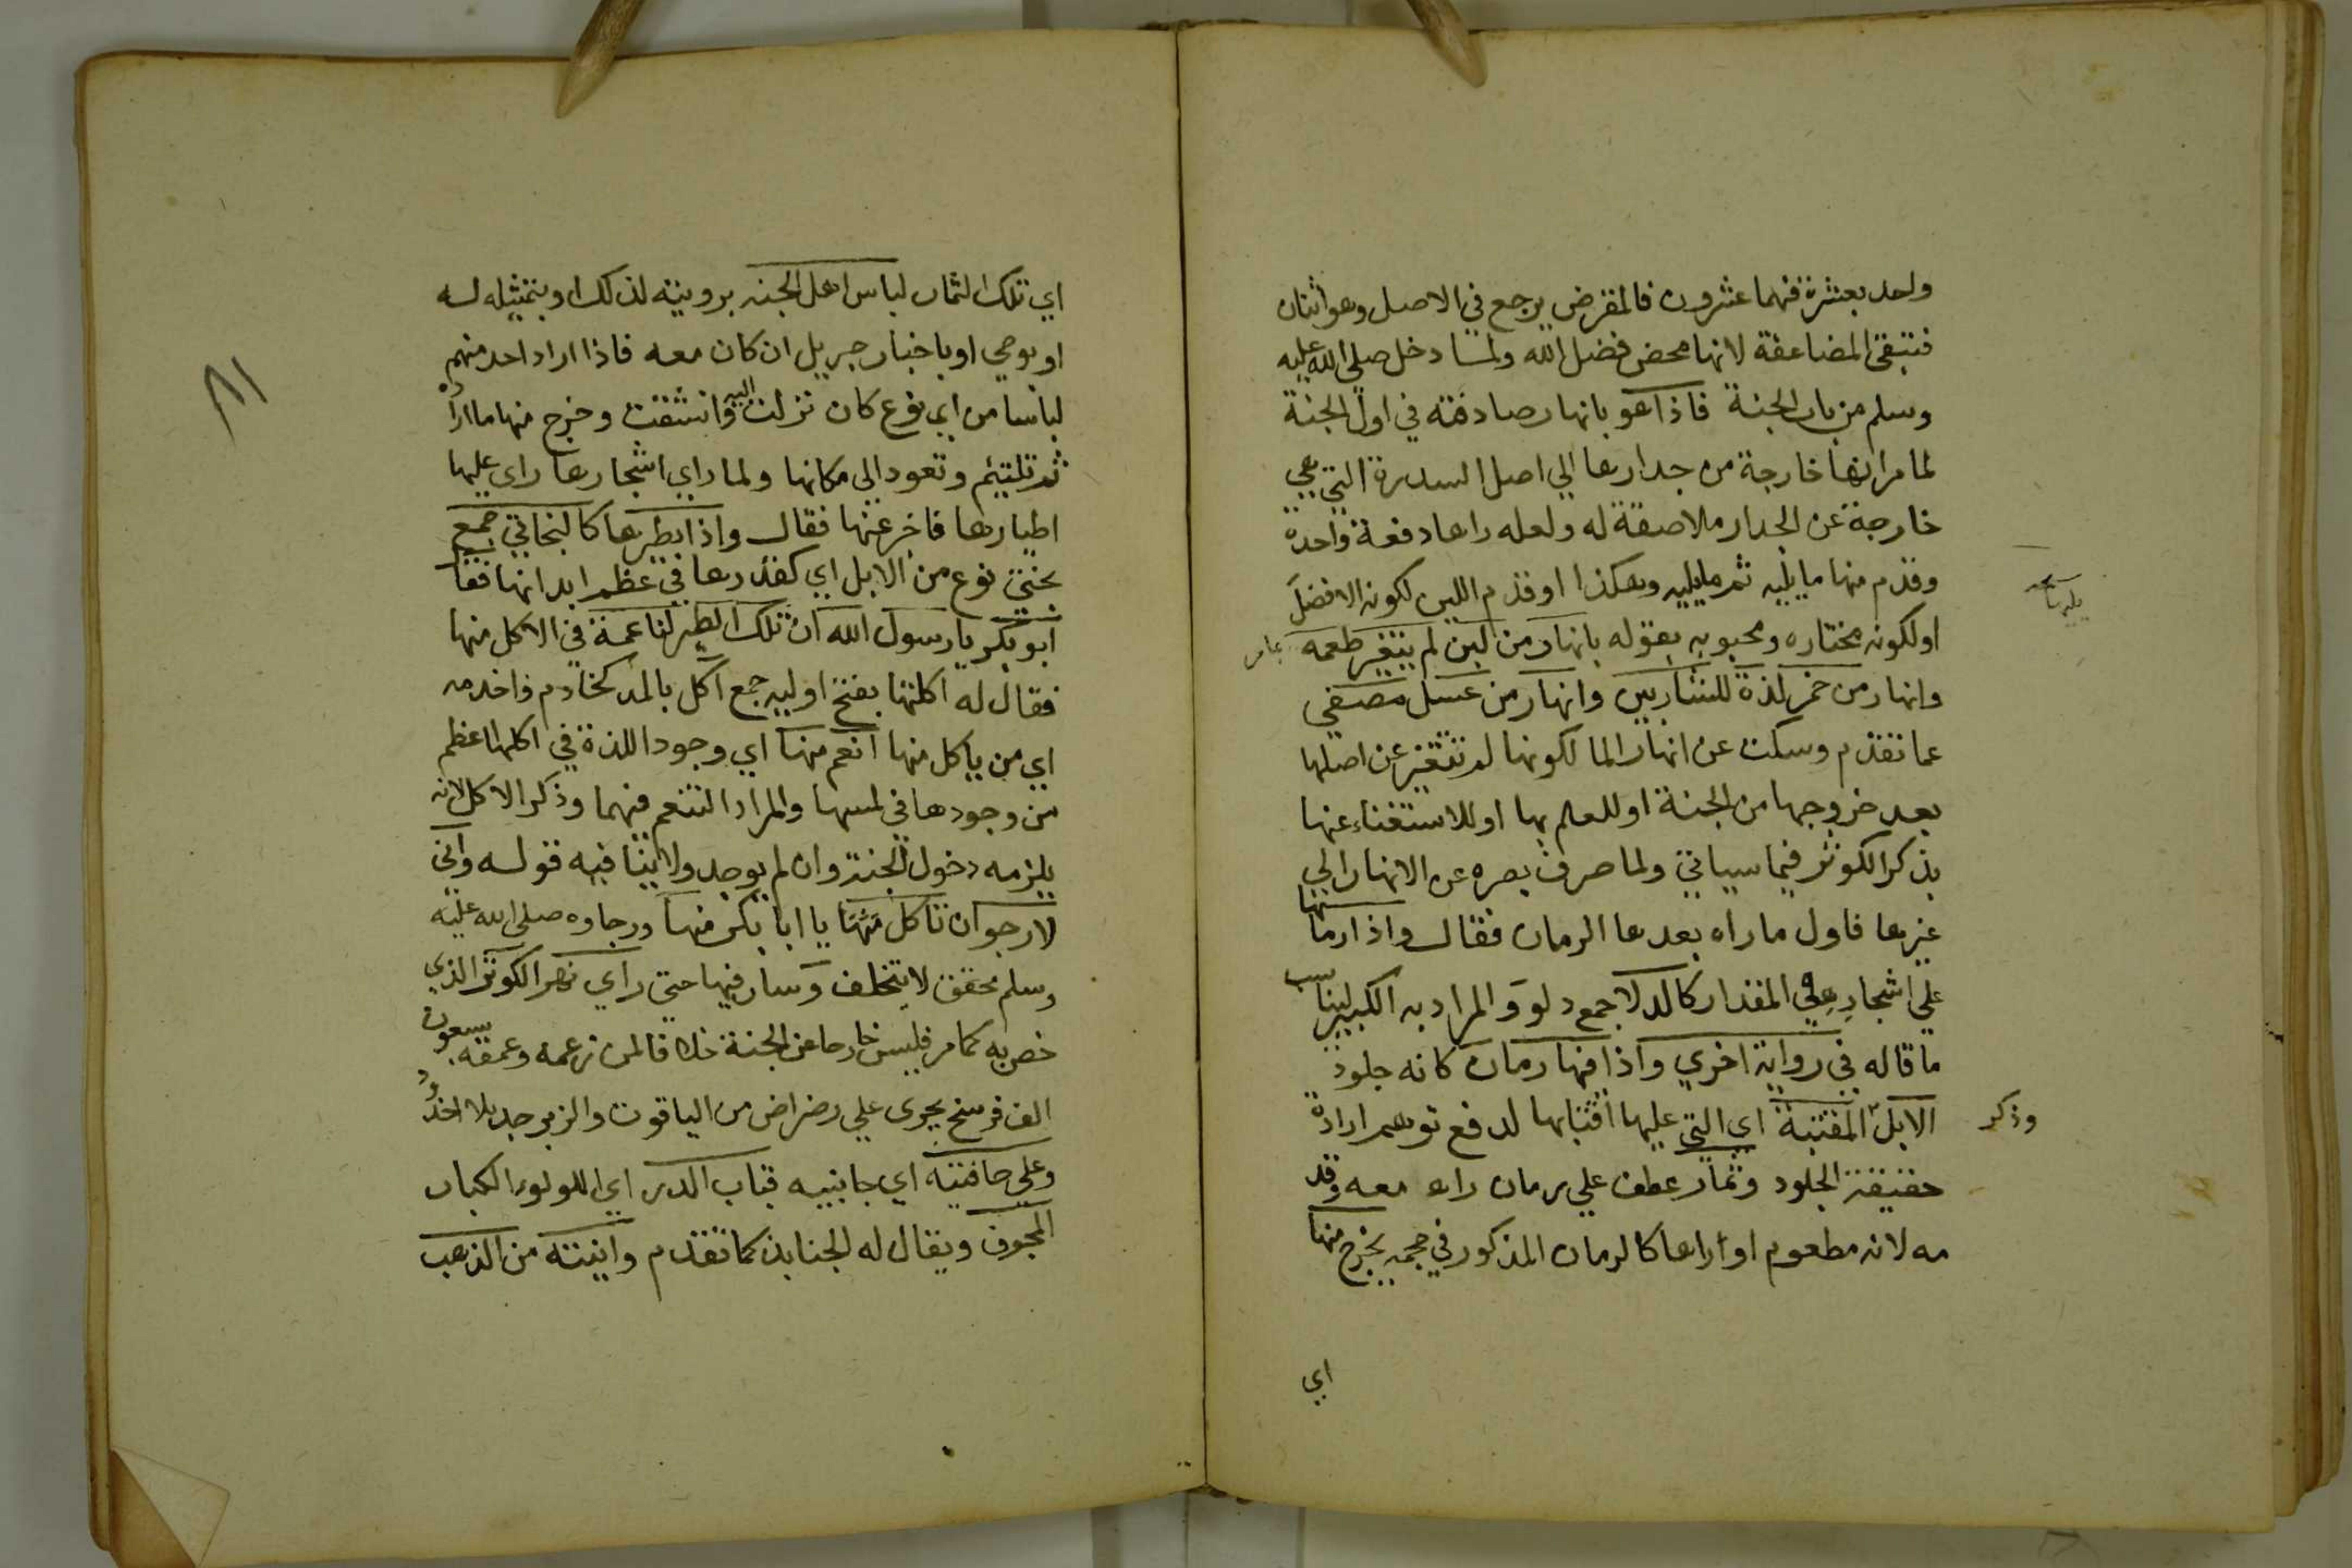 واحد بعشرة فهما عشرون فالمقرض يرجع في الاصل وهو اثنان
فتبقى المضاعفة لانها محض فضل الله ولما دخل صلى الله عليه
وسلم من باب الجنة فاذا هو بانهار صادفته في اول الجنة
لما مر انها خارجة من جدارها الي اصل السدرة التي هي
خارجة عن الجدار ملاصقة له ولعله راها دفعة واحدة
وقدم منها ما يليه ثم ما يليه وهكذا او قدم اللبن لكونه الافضل
او لكونه مختاره ومحبوبه بقوله بانهار من لبن لم يتغير طعمه
وانهار من خمر لذة للشاربين وانهار من عسل مصفي
عما تقدم وسكت عن انهار الما لكونها لم تتغير عن اصلها
بعد خروجها من الجنة او للعلم بها او للاستغناء عنها
بذكر الكوثر فيما سياتي ولما صرف بصره عن الانهار الي
غيرها فاول ما راه بعدها الرمان فقال واذا رمانها
علي اشجاره في المقدار كالدلا جمع دلو والمراد به الكبير ليناسب
ما قاله في رواية اخري واذا فيها رمان كانه جلود
الابل المقتبة اي التي عليها اقتابها لدفع توهم ارادة
وذكر
حقيقة الجلود وثمار عطف علي رمان راه معه وقد
مه لانه مطعوم او اراها كالرمان المذكور في حجمه يخرج منها
اي
اي تلك الثمار لباس اهل الجنه برويته لذلك او بتمثيله له
او بوحي او باخبار جبريل ان كان معه فاذا اراد احد منهم
لباسا من اي نوع كان نزلت اليه وانشقت وخرج منها ما اراده
ثم تلتيم وتعود الي مكانها ولما راي اشجارها راي عليها
اطيارها فاخبر عنها فقال واذا بطيرها كالبخاتي جمع
بختي نوع من الابل اي كقدرها في عظم ابدانها فقا
ابو بكر يا رسول الله ان تلك الطير لناعمة في الاكل منها
فقال له اكلتها بفتح اوليه جمع آكل بالمد كخادم وخدمه
اي من ياكل منها انعم منها اي وجود اللذة في اكلها اعظم
من وجودها في لمسها والمراد التنعم فيهما وذكر الاكل لانه
يلزمه دخول الجنة وان لم يوجد ولا ينافيه قوله واني
لارجو ان تاكل منها يا ابا بكر منها ورجاوه صلى الله عليه
وسلم محقق لا يتخلف وسار فيها حتي راي نهر الكوثر الذي
خص به كما مر فليس خارجا عن الجنة خلافا لمن زعمه وعمقه سبعون
الف فرسخ يجري علي رضراض من الياقوت والزبرجد بلا اخدود
وعلي حافتيه اي جانبيه قباب الدر اي اللولوء الكبار
المجوف ويقال له الجنابذ كما تقدم وانيته من الذهب